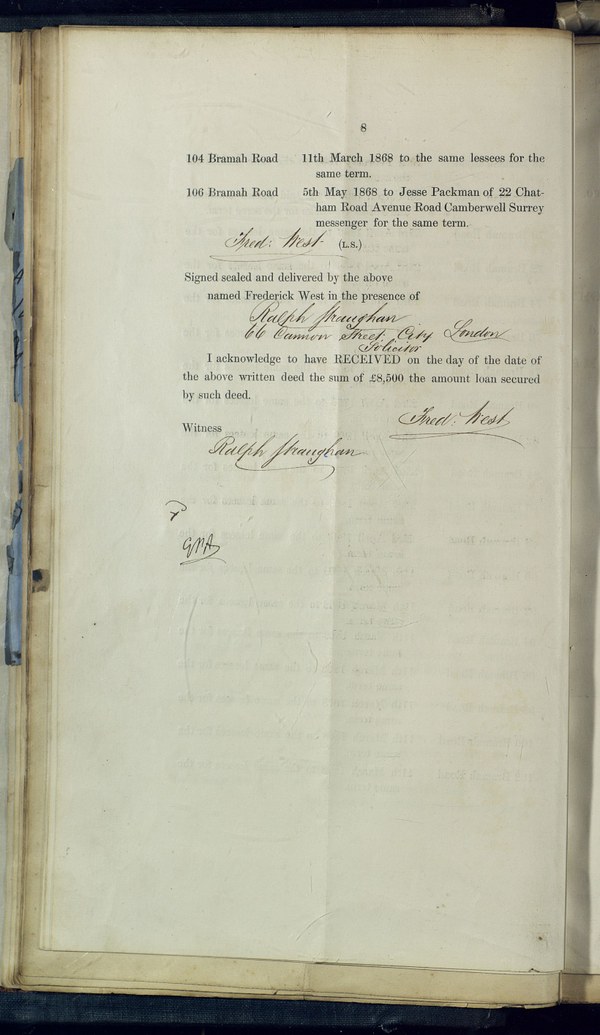 8
104 Bramah Road 11th March 1868 to the same lessees for the
same term.
106 Bramah Road 5th May 1868 to Jesse Packman of 22 Chat-
ham Road Avenue Road Camberwell Surrey
messenger for the same term.
Fred: West (L.S.)
Signed sealed and delivered by the above
named Frederick West in the presence of
Ralph Straughan
66 Cannon Street City London
Solicitor
I acknowledge to have RECEIVED on the day of the date of
the above written deed the sum of £8,500 the amount loan secured
by such deed.
Fred: West
Witness
Ralph Straughan